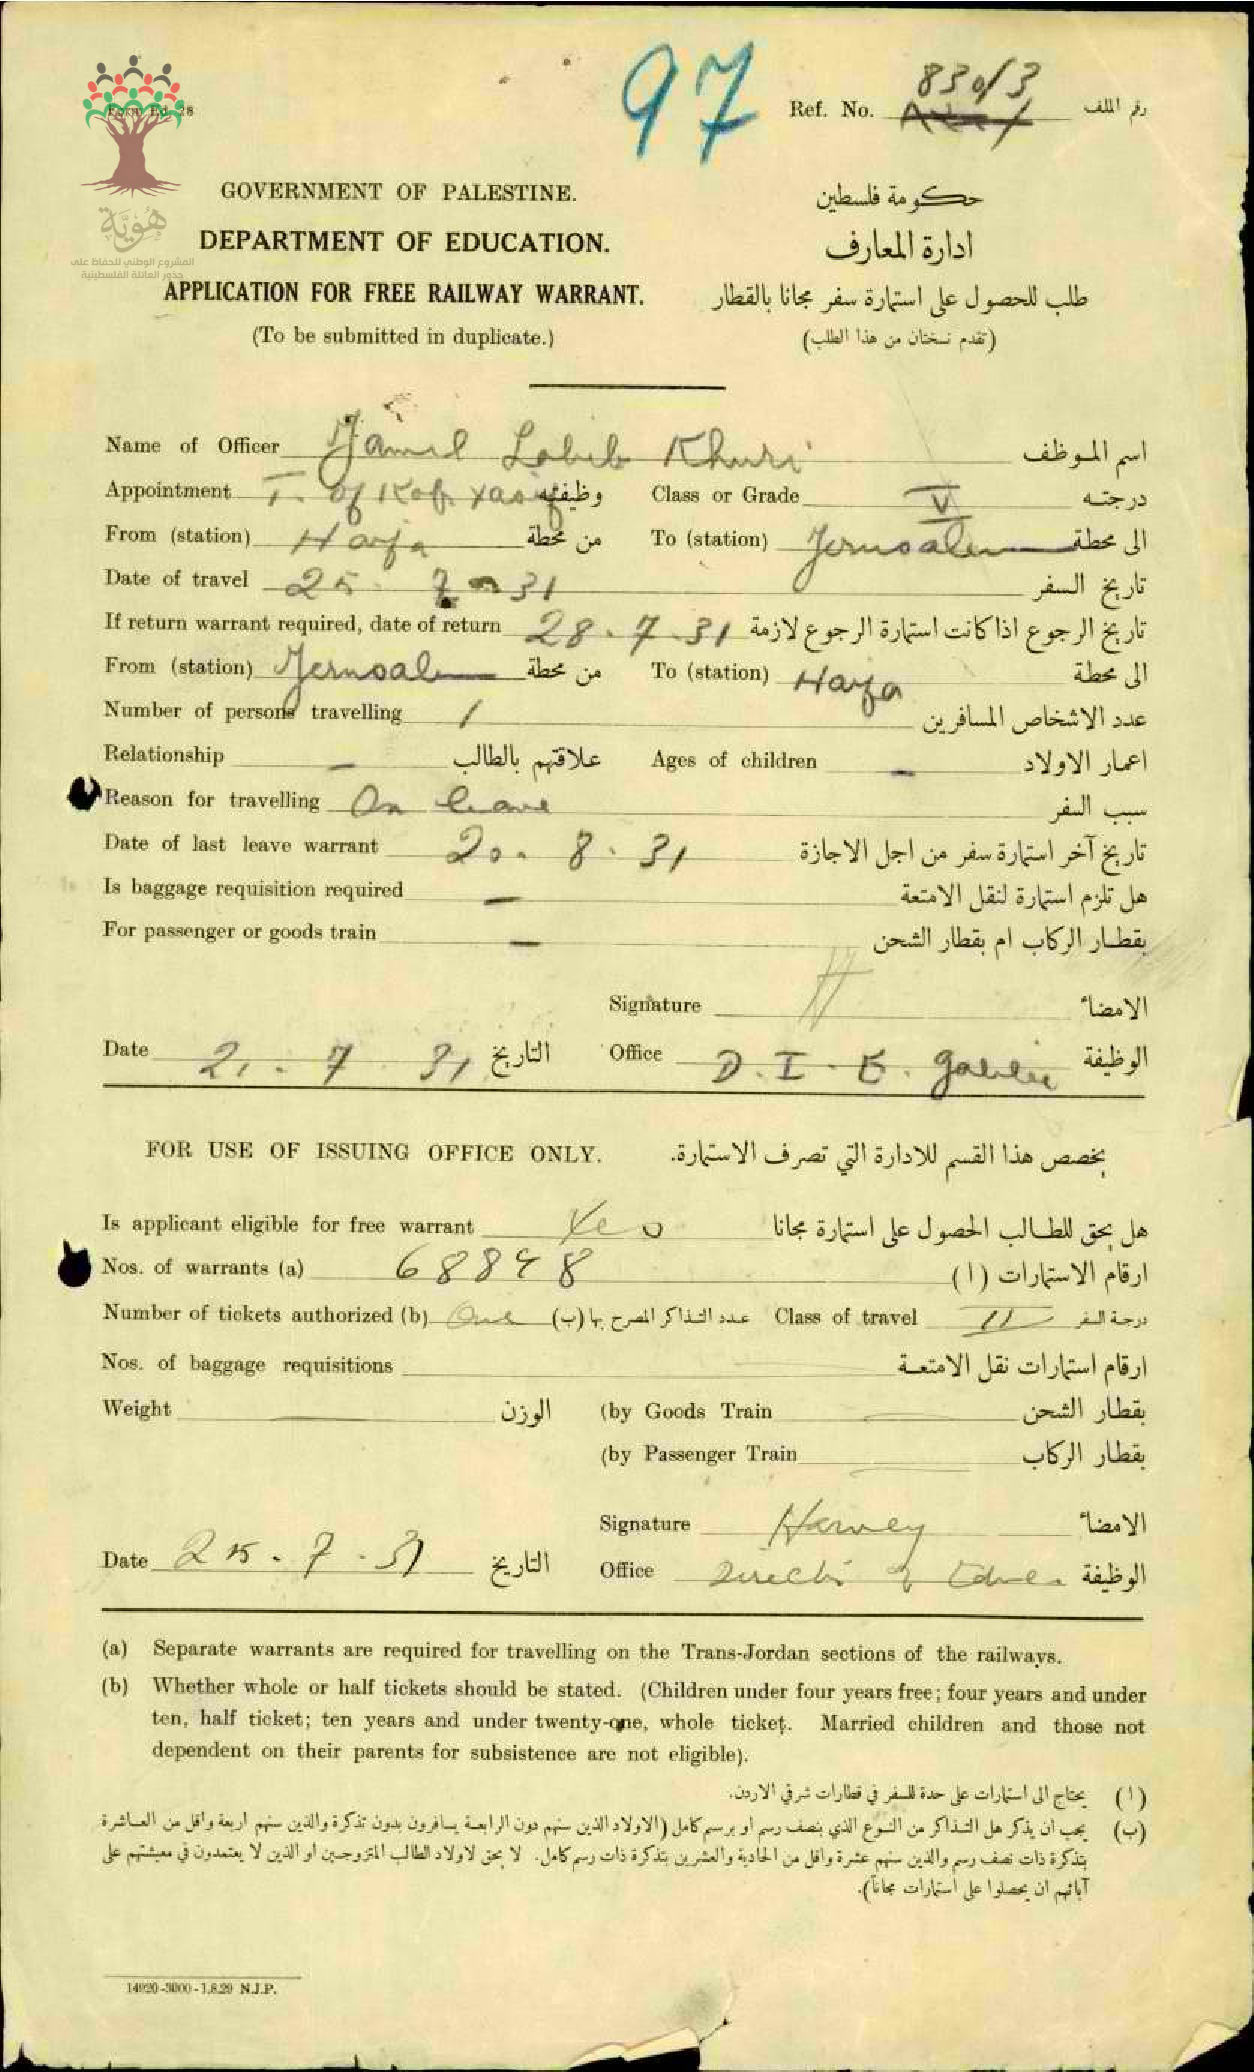 97
830/3
Form Ed. 28
Ref. No. رقم الملف
هُوِيَّة
المشروع الوطني للحفاظ على
جذور العائلة الفلسطينية
GOVERNMENT OF PALESTINE. حكومة فلسطين
DEPARTMENT OF EDUCATION. ادارة المعارف
APPLICATION FOR FREE RAILWAY WARRANT. طلب للحصول على استمارة سفر مجانا بالقطار
(To be submitted in duplicate.) (تقدم نسختان من هذا الطلب)
Name of Officer Jamil Labib Khuri اسم الموظف
Appointment T. of Kafr Yasif وظيفته Class or Grade V درجته
From (station) Haifa من محطة To (station) Jerusalem الى محطة
Date of travel 25. 7. 31 تاريخ السفر
If return warrant required, date of return 28. 7. 31 تاريخ الرجوع اذا كانت استمارة الرجوع لازمة
From (station) Jerusalem من محطة To (station) Haifa الى محطة
Number of persons travelling 1 عدد الاشخاص المسافرين
Relationship — علاقتهم بالطالب Ages of children — اعمار الاولاد
Reason for travelling On leave سبب السفر
Date of last leave warrant 20. 8. 31 تاريخ آخر استمارة سفر من اجل الاجازة
Is baggage requisition required — هل تلزم استمارة لنقل الامتعة
For passenger or goods train — بقطار الركاب ام بقطار الشحن
Signature الامضاء
Date 21. 7. 31 التاريخ Office D. I. E. Galilee الوظيفة
FOR USE OF ISSUING OFFICE ONLY. يخصص هذا القسم للادارة التي تصرف الاستمارة.
Is applicant eligible for free warrant Yes هل يحق للطالب الحصول على استمارة مجانا
Nos. of warrants (a) 68848 ارقام الاستمارات (ا)
Number of tickets authorized (b) One عدد التذاكر المصرح بها (ب) Class of travel II درجة السفر
Nos. of baggage requisitions ارقام استمارات نقل الامتعة
Weight الوزن (by Goods Train بقطار الشحن
(by Passenger Train بقطار الركاب
Signature Harvey الامضاء
Date 25. 7. 31 التاريخ Office Director of Educ. الوظيفة
(a) Separate warrants are required for travelling on the Trans-Jordan sections of the railways.
(b) Whether whole or half tickets should be stated. (Children under four years free; four years and under
ten, half ticket; ten years and under twenty-one, whole ticket. Married children and those not
dependent on their parents for subsistence are not eligible).
(ا) يحتاج الى استمارات على حدة للسفر في قطارات شرقي الاردن.
(ب) يجب ان يذكر هل التذاكر من النوع الذي بنصف رسم او برسم كامل (الاولاد الذين سنهم دون الرابعة يسافرون بدون تذكرة والذين سنهم اربعة واقل من العاشرة
بتذكرة ذات نصف رسم والذين سنهم عشرة واقل من الحادية والعشرين بتذكرة ذات رسم كامل. لا يحق لاولاد الطالب المتزوجين او الذين لا يعتمدون في معيشتهم على
آبائهم ان يحصلوا على استمارات مجاناً).
14920-3000-1.8.29 N.J.P.